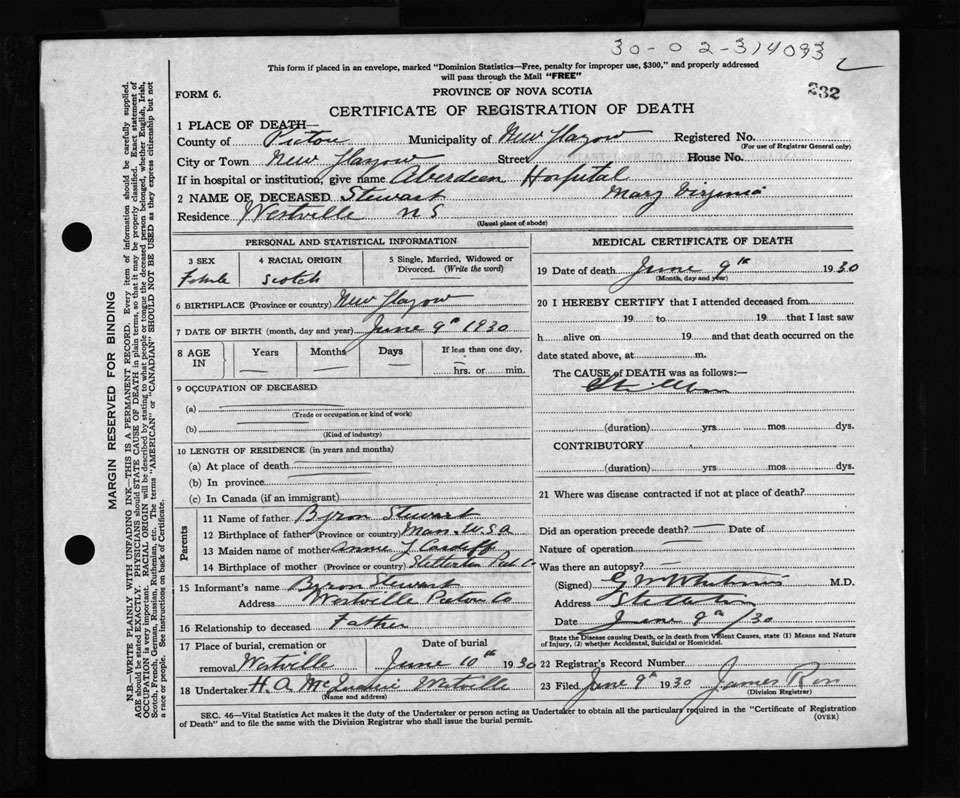 30-02-314093
This form if placed in an envelope, marked "Dominion Statistics—Free, penalty for improper use, $300," and properly addressed
will pass through the Mail "FREE"
232
FORM 6.
PROVINCE OF NOVA SCOTIA
CERTIFICATE OF REGISTRATION OF DEATH
1 PLACE OF DEATH—
County of Pictou Municipality of New Glasgow Registered No.
(For use of Registrar General only)
City or Town New Glasgow Street House No.
If in hospital or institution, give name Aberdeen Hospital
2 NAME OF DECEASED Stewart Mary Virginia
Residence Westville N S
(Usual place of abode)
PERSONAL AND STATISTICAL INFORMATION
3 SEX 4 RACIAL ORIGIN 5 Single, Married, Widowed or
Divorced. (Write the word)
Female Scotch
6 BIRTHPLACE (Province or country) New Glasgow
7 DATE OF BIRTH (month, day and year) June 9th 1930
8 AGE IN Years Months Days If less than one day,
hrs. or min.
9 OCCUPATION OF DECEASED
(a)
(Trade or occupation or kind of work)
(b)
(Kind of industry)
10 LENGTH OF RESIDENCE (in years and months)
(a) At place of death
(b) In province
(c) In Canada (if an immigrant)
Parents
11 Name of father Byron Stewart
12 Birthplace of father (Province or country) Mass. U.S.A
13 Maiden name of mother Annie
14 Birthplace of mother (Province or country) Stellarton Pict. Co
15 Informant's name Byron Stewart
Address Westville Pictou Co
16 Relationship to deceased Father
17 Place of burial, cremation or Date of burial
removal Westville June 10th 1930
18 Undertaker H. A. Westville
(Name and address)
MEDICAL CERTIFICATE OF DEATH
19 Date of death June 9th 1930
(Month, day and year)
20 I HEREBY CERTIFY that I attended deceased from
19 to 19 that I last saw
h alive on 19 and that death occurred on the
date stated above, at m.
The CAUSE of DEATH was as follows:—
Stillborn
(duration) yrs mos dys.
CONTRIBUTORY
(duration) yrs mos dys.
21 Where was disease contracted if not at place of death?
Did an operation precede death? Date of
Nature of operation
Was there an autopsy?
(Signed) G M Whitman M.D.
Address Stellarton
Date June 9th /30
State the Disease causing Death, or in death from Violent Causes, state (1) Means and Nature
of Injury, (2) whether Accidental, Suicidal or Homicidal.
22 Registrar's Record Number
23 Filed June 9th 1930 James Ross
(Division Registrar)
SEC. 46—Vital Statistics Act makes it the duty of the Undertaker or person acting as Undertaker to obtain all the particulars required in the "Certificate of Registration
of Death" and to file the same with the Division Registrar who shall issue the burial permit.
(OVER)
MARGIN RESERVED FOR BINDING
N.B.—WRITE PLAINLY WITH UNFADING INK—THIS IS A PERMANENT RECORD. Every item of information should be carefully supplied.
AGE should be stated EXACTLY. PHYSICIANS should STATE CAUSE OF DEATH in plain terms, so that it may be properly classified. Exact statement of
OCCUPATION is very important. RACIAL ORIGIN will be described by stating to what people or tongue the deceased person belonged, whether English, Irish,
Scotch, French, German, Russian, Ruthenian, etc. The terms "AMERICAN" or "CANADIAN" SHOULD NOT BE USED as they express citizenship but not
a race or people. See instructions on back of Certificate.